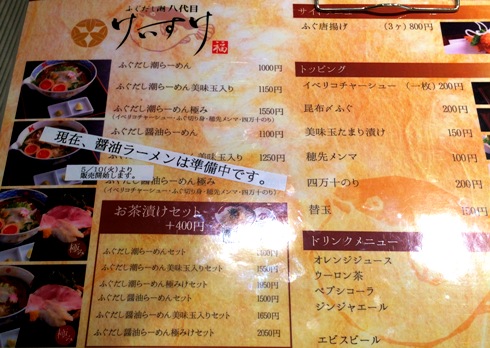 ふぐだし潮 八代目
けいすけ
福
ふぐだし潮らーめん 1000円
ふぐだし潮らーめん美味玉入り 1150円
ふぐだし潮らーめん極み 1550円
(イベリコチャーシュー・ふぐ切り身・穂先メンマ・四万十のり)
ふぐだし醤油らーめん 1100円
現在、醤油ラーメンは準備中です。
5/10(火)より
販売開始します。
1250円
らーめん極み
(イベリコチャーシュー・ふぐ切り身・穂先メンマ・四万十のり)
お茶漬けセット
+400円
ふぐだし潮らーめんセット
ふぐだし潮らーめん美味玉入りセット 1550円
ふぐだし潮らーめん極みけセット 1950円
ふぐだし醤油らーめんセット 1500円
ふぐだし醤油らーめん美味玉入りセット 1650円
ふぐだし醤油らーめん極みけセット 2050円
極み
極
ふぐ唐揚げ (3ヶ)800円
トッピング
イベリコチャーシュー (一枚)200円
昆布〆ふぐ 200円
美味玉たまり漬け 150円
穂先メンマ 100円
四万十のり 200円
替玉 150円
ドリンクメニュー
オレンジジュース
ウーロン茶
ペプシコーラ
ジンジャエール
エビスビール